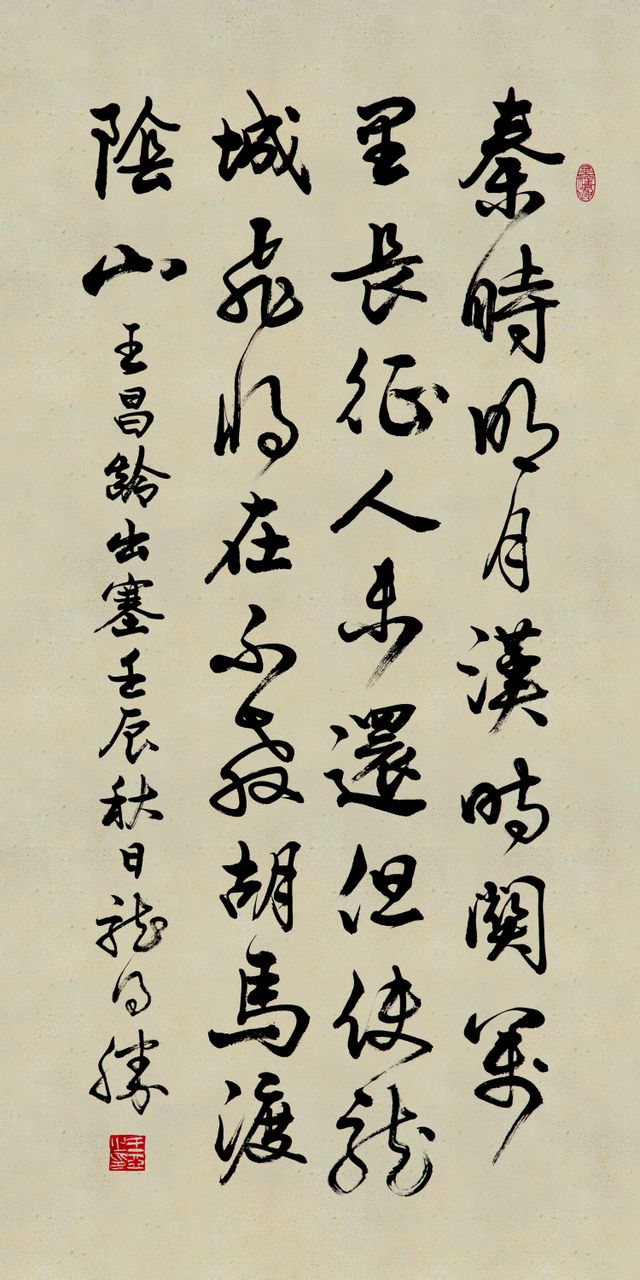 秦時明月漢時關萬
里長征人未還但使龍
城飛將在不教胡馬渡
陰山
王昌齡出塞壬辰秋日龍勝